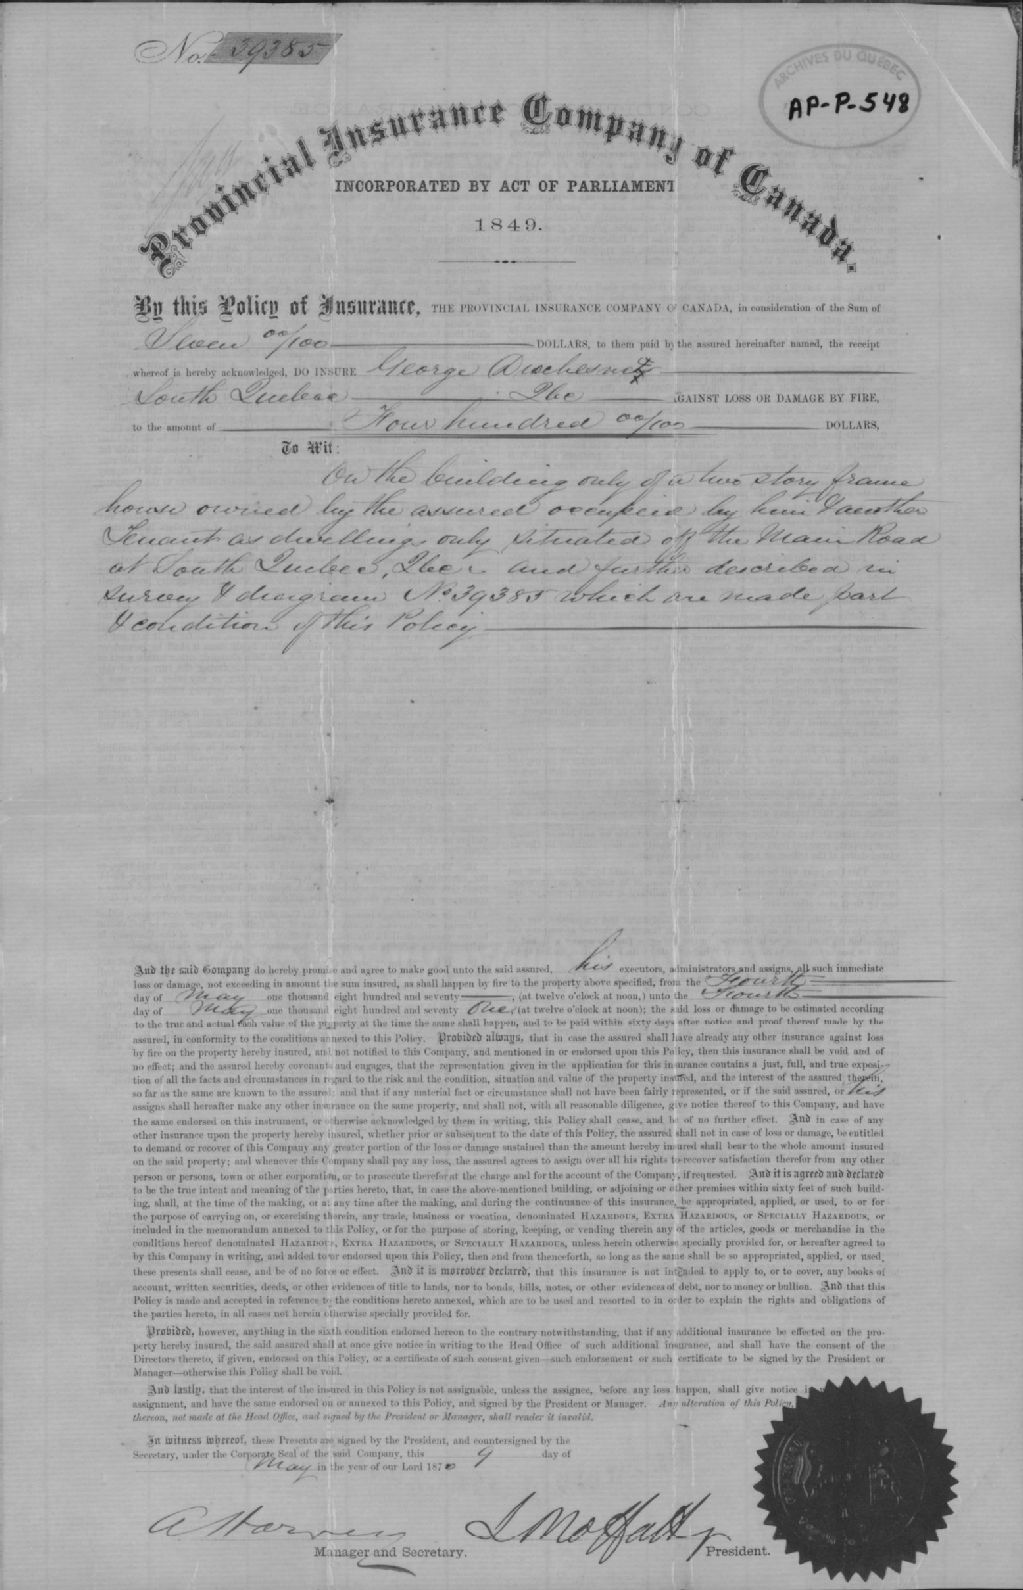 No. 39385
ARCHIVES DU QUÉBEC
AP-P-548
Provincial Insurance Company of Canada.
INCORPORATED BY ACT OF PARLIAMENT
1849.
By this Policy of Insurance, THE PROVINCIAL INSURANCE COMPANY OF CANADA, in consideration of the Sum of
Seven 00/100 DOLLARS, to them paid by the assured hereinafter named, the receipt
whereof is hereby acknowledged, DO INSURE George
South Quebec Qbc AGAINST LOSS OR DAMAGE BY FIRE,
to the amount of Four hundred 00/100 DOLLARS,
To Wit:
On the building only of a two story frame
house owned by the assured occupied by him & another
Tenant as dwellings only situated off the Main Road
at South Quebec, Qbc and further described in
survey & diagram No 39385 which are made part
& condition of this Policy
And the said Company do hereby promise and agree to make good unto the said assured, his executors, administrators and assigns, all such immediate
loss or damage, not exceeding in amount the sum insured, as shall happen by fire to the property above specified, from the Fourth
day of May one thousand eight hundred and seventy , (at twelve o'clock at noon,) unto the Fourth
day of May one thousand eight hundred and seventy One (at twelve o'clock at noon); the said loss or damage to be estimated according
to the true and actual cash value of the property at the time the same shall happen, and to be paid within sixty days after notice and proof thereof made by the
assured, in conformity to the conditions annexed to this Policy. Provided always, that in case the assured shall have already any other insurance against loss
by fire on the property hereby insured, and not notified to this Company, and mentioned in or endorsed upon this Policy, then this insurance shall be void and of
no effect; and the assured hereby covenants and engages, that the representation given in the application for this insurance contains a just, full, and true exposi-
tion of all the facts and circumstances in regard to the risk and the condition, situation and value of the property insured, and the interest of the assured therein,
so far as the same are known to the assured; and that if any material fact or circumstance shall not have been fairly represented, or if the said assured, or his
assigns shall hereafter make any other insurance on the same property, and shall not, with all reasonable diligence, give notice thereof to this Company, and have
the same endorsed on this instrument, or otherwise acknowledged by them in writing, this Policy shall cease, and be of no further effect. And in case of any
other insurance upon the property hereby insured, whether prior or subsequent to the date of this Policy, the assured shall not in case of loss or damage, be entitled
to demand or recover of this Company any greater portion of the loss or damage sustained than the amount hereby insured shall bear to the whole amount insured
on the said property; and whenever this Company shall pay any loss, the assured agrees to assign over all his rights to recover satisfaction therefor from any other
person or persons, town or other corporation, or to prosecute therefor at the charge and for the account of the Company, if requested. And it is agreed and declared
to be the true intent and meaning of the parties hereto, that, in case the above-mentioned building, or adjoining or other premises within sixty feet of such build-
ing, shall, at the time of the making, or at any time after the making, and during the continuance of this insurance, be appropriated, applied, or used, to or for
the purpose of carrying on, or exercising therein, any trade, business or vocation, denominated HAZARDOUS, EXTRA HAZARDOUS, or SPECIALLY HAZARDOUS, or
included in the memorandum annexed to this Policy, or for the purpose of storing, keeping, or vending therein any of the articles, goods or merchandise in the
conditions hereof denominated HAZARDOUS, EXTRA HAZARDOUS, or SPECIALLY HAZARDOUS, unless herein otherwise specially provided for, or hereafter agreed to
by this Company in writing, and added to or endorsed upon this Policy, then and from thenceforth, so long as the same shall be so appropriated, applied, or used,
these presents shall cease, and be of no force or effect. And it is moreover declared, that this insurance is not intended to apply to, or to cover, any books of
account, written securities, deeds, or other evidences of title to lands, nor to bonds, bills, notes, or other evidences of debt, nor to money or bullion. And that this
Policy is made and accepted in reference to the conditions hereto annexed, which are to be used and resorted to in order to explain the rights and obligations of
the parties hereto, in all cases not herein otherwise specially provided for.
Provided, however, anything in the sixth condition endorsed hereon to the contrary notwithstanding, that if any additional insurance be effected on the pro-
perty hereby insured, the said assured shall at once give notice in writing to the Head Office of such additional insurance, and shall have the consent of the
Directors thereto, if given, endorsed on this Policy, or a certificate of such consent given—such endorsement or such certificate to be signed by the President or
Manager—otherwise this Policy shall be void.
And lastly, that the interest of the insured in this Policy is not assignable, unless the assignee, before any loss happen, shall give notice
assignment, and have the same endorsed on or annexed to this Policy, and signed by the President or Manager. Any alteration of this Policy,
thereon, not made at the Head Office, and signed by the President or Manager, shall render it invalid.
In witness whereof, these Presents are signed by the President, and countersigned by the
Secretary, under the Corporate Seal of the said Company, this 9 day of
May in the year of our Lord 1870
Manager and Secretary.
President.